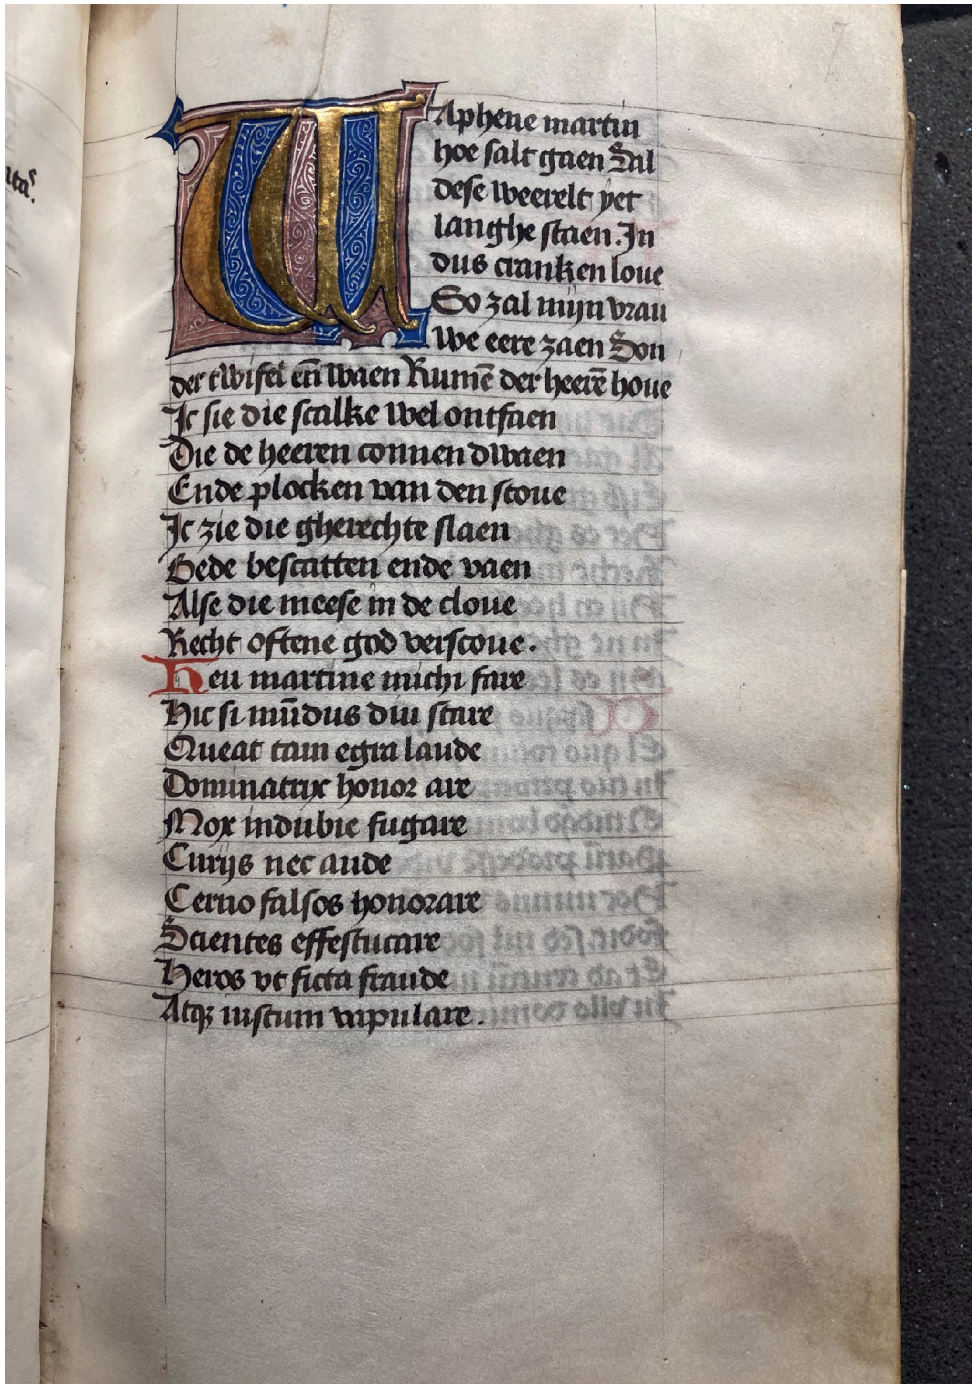 WAphene martin
hoe salt gaen Sal
dese weerelt yet
langhe staen. In
dus cranken loue
So zal mijn vrau
we eere zaen Son
der twifel en̄ waen Rumē der heerē houe
Ic sie die scalke wel ontfaen
Die de heeren connen dwaen
Ende plocken van den stoue
Ic zie die gherechte slaen
Bede bescatten ende vaen
Alse die meese in de cloue
Recht oftene god verscoue.
Heu martine michi fare
Hic si mūdus diu stare
Queat tam egra laude
Dominatrix honor are
Mox indubie fugare
Curijs nec aude
Cerno falsos honorare
Scientes effestucare
Heros vt ficta fraude
Atqꝫ iustum vapulare.